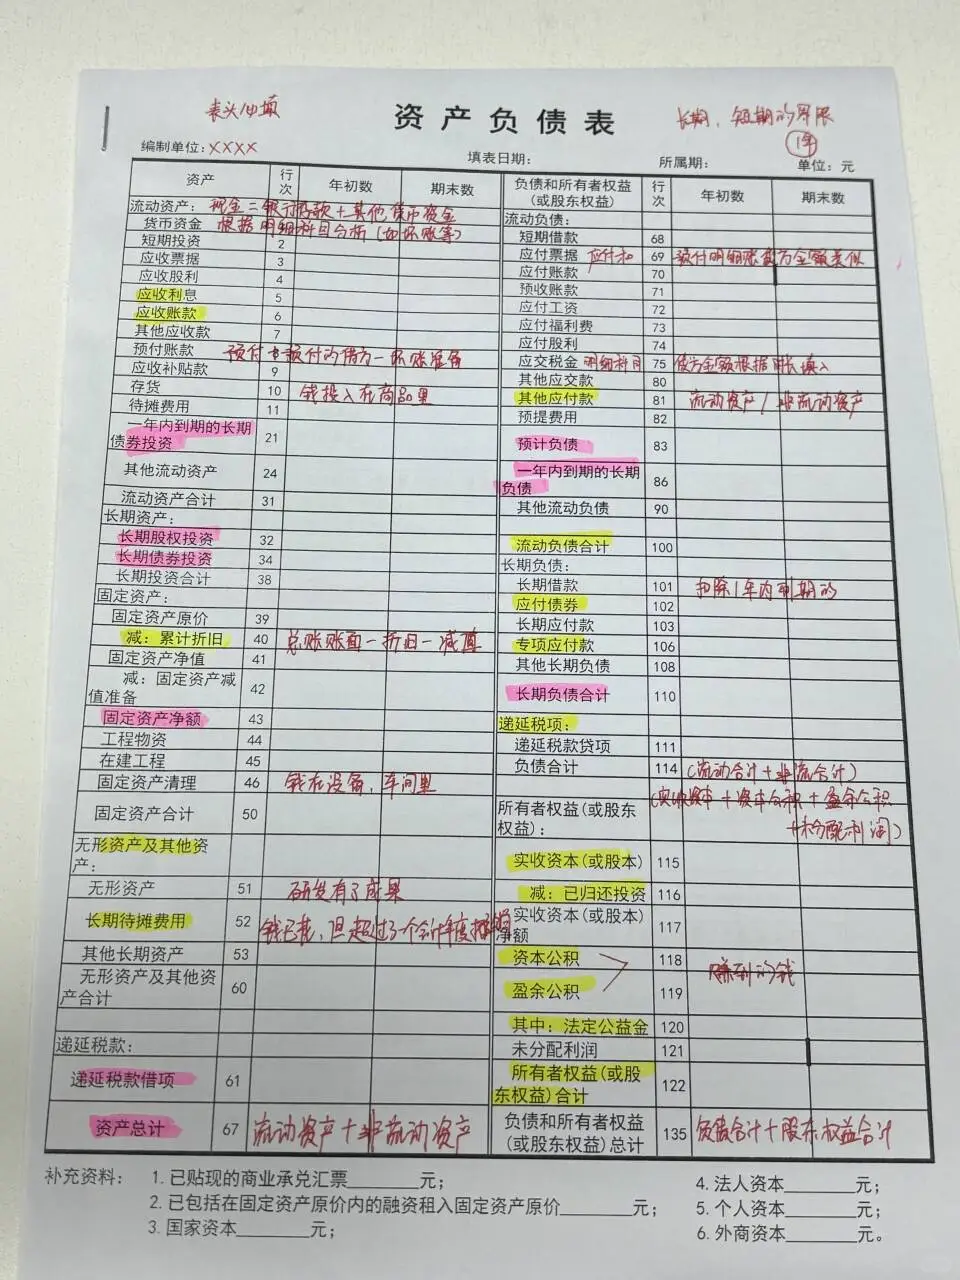 表头必填
资产负债表
长期、短期的界限
1年
编制单位:XXXX
填表日期:
所属期:
单位:元
资产 行次 年初数 期末数
流动资产: 现金=银行存款+其他货币资金
货币资金 根据明细科目分析(如坏账等)
短期投资 2
应收票据 3
应收股利 4
应收利息 5
应收账款 6
其他应收款 7
预付账款 预付+预付的借方-坏账准备
应收补贴款 9
存货 10 钱投入在商品里
待摊费用 11
一年内到期的长期
债券投资 21
其他流动资产 24
流动资产合计 31
长期资产:
长期股权投资 32
长期债券投资 34
长期投资合计 38
固定资产:
固定资产原价 39
减:累计折旧 40 总账账面-折旧-减值
固定资产净值 41
减:固定资产减
值准备 42
固定资产净额 43
工程物资 44
在建工程 45
固定资产清理 46 钱在设备,车间里
固定资产合计 50
无形资产及其他资
产:
无形资产 51 研发有了成果
长期待摊费用 52 钱已花,但超过了一个会计年度摊销
其他长期资产 53
无形资产及其他资
产合计 60
递延税款:
递延税款借项 61
资产总计 67 流动资产+非流动资产
负债和所有者权益
(或股东权益) 行次 年初数 期末数
流动负债:
短期借款 68
应付票据 应付和 69 预付明细账贷方金额类似
应付账款 70
预收账款 71
应付工资 72
应付福利费 73
应付股利 74
应交税金 明细科目 75 贷方金额根据 填入
其他应交款 80
其他应付款 81 流动资产/非流动资产
预提费用 82
预计负债 83
一年内到期的长期
负债 86
其他流动负债 90
流动负债合计 100
长期负债:
长期借款 101 扣除1年内到期的
应付债券 102
长期应付款 103
专项应付款 106
其他长期负债 108
长期负债合计 110
递延税项:
递延税款贷项 111
负债合计 114 (流动合计+非流合计)
所有者权益(或股东
权益): (实收资本+资本公积+盈余公积
+未分配利润)
实收资本(或股本) 115
减:已归还投资 116
实收资本(或股本)
净额 117
资本公积 118 赚到的钱
盈余公积 119
其中:法定公益金 120
未分配利润 121
所有者权益(或股
东权益)合计 122
负债和所有者权益
(或股东权益)总计 135 负债合计+股东权益合计
补充资料: 1.已贴现的商业承兑汇票________元;
2.已包括在固定资产原价内的融资租入固定资产原价________元;
3.国家资本________元;
4.法人资本________元;
5.个人资本________元;
6.外商资本________元。